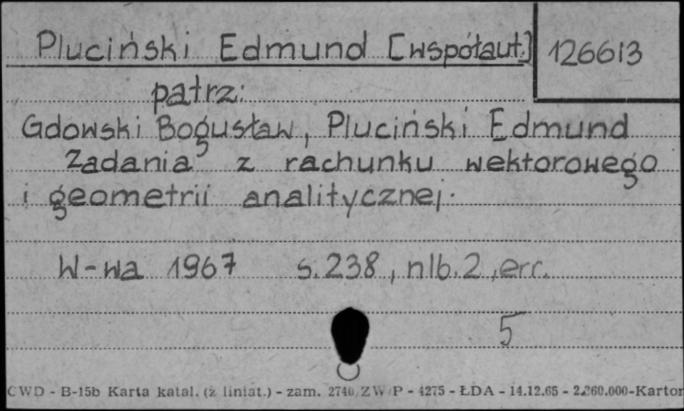 Pluciński Edmund [współaut.] 126613
patrz:
Gdowski Bogusław, Pluciński Edmund
Zadania z rachunku wektorowego
i geometrii analitycznej.
W-wa 1967 s.238, nlb.2, err.
5
CWD - B-15b Karta katal. (z liniat.) - zam. 2740 ZW P - 4275 - ŁDA - 14.12.65 - 2.260.000 - Karton